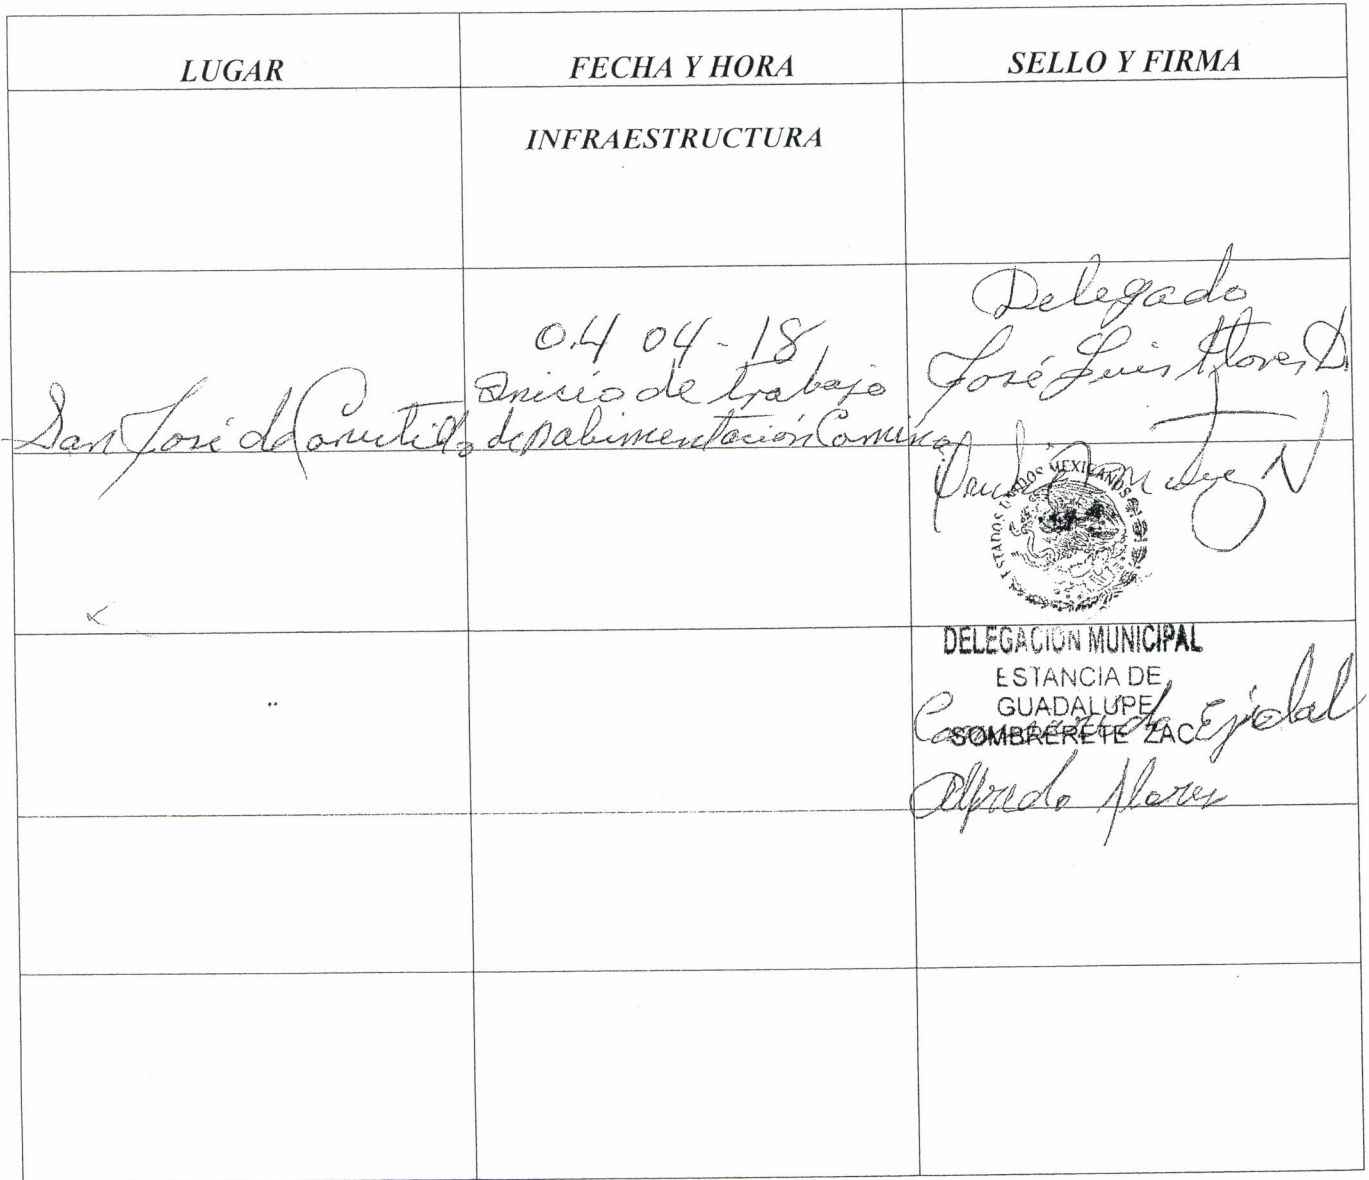 LUGAR
FECHA Y HORA
SELLO Y FIRMA
INFRAESTRUCTURA
San José del Canutillo
04 04-18
Inicio de trabajo
de pabimentación
Delegado
José Luis Flores D.
ESTADOS UNIDOS MEXICANOS
DELEGACION MUNICIPAL
ESTANCIA DE
GUADALUPE
SOMBRERETE ZAC
Comisariado Ejidal
Alfredo Flores